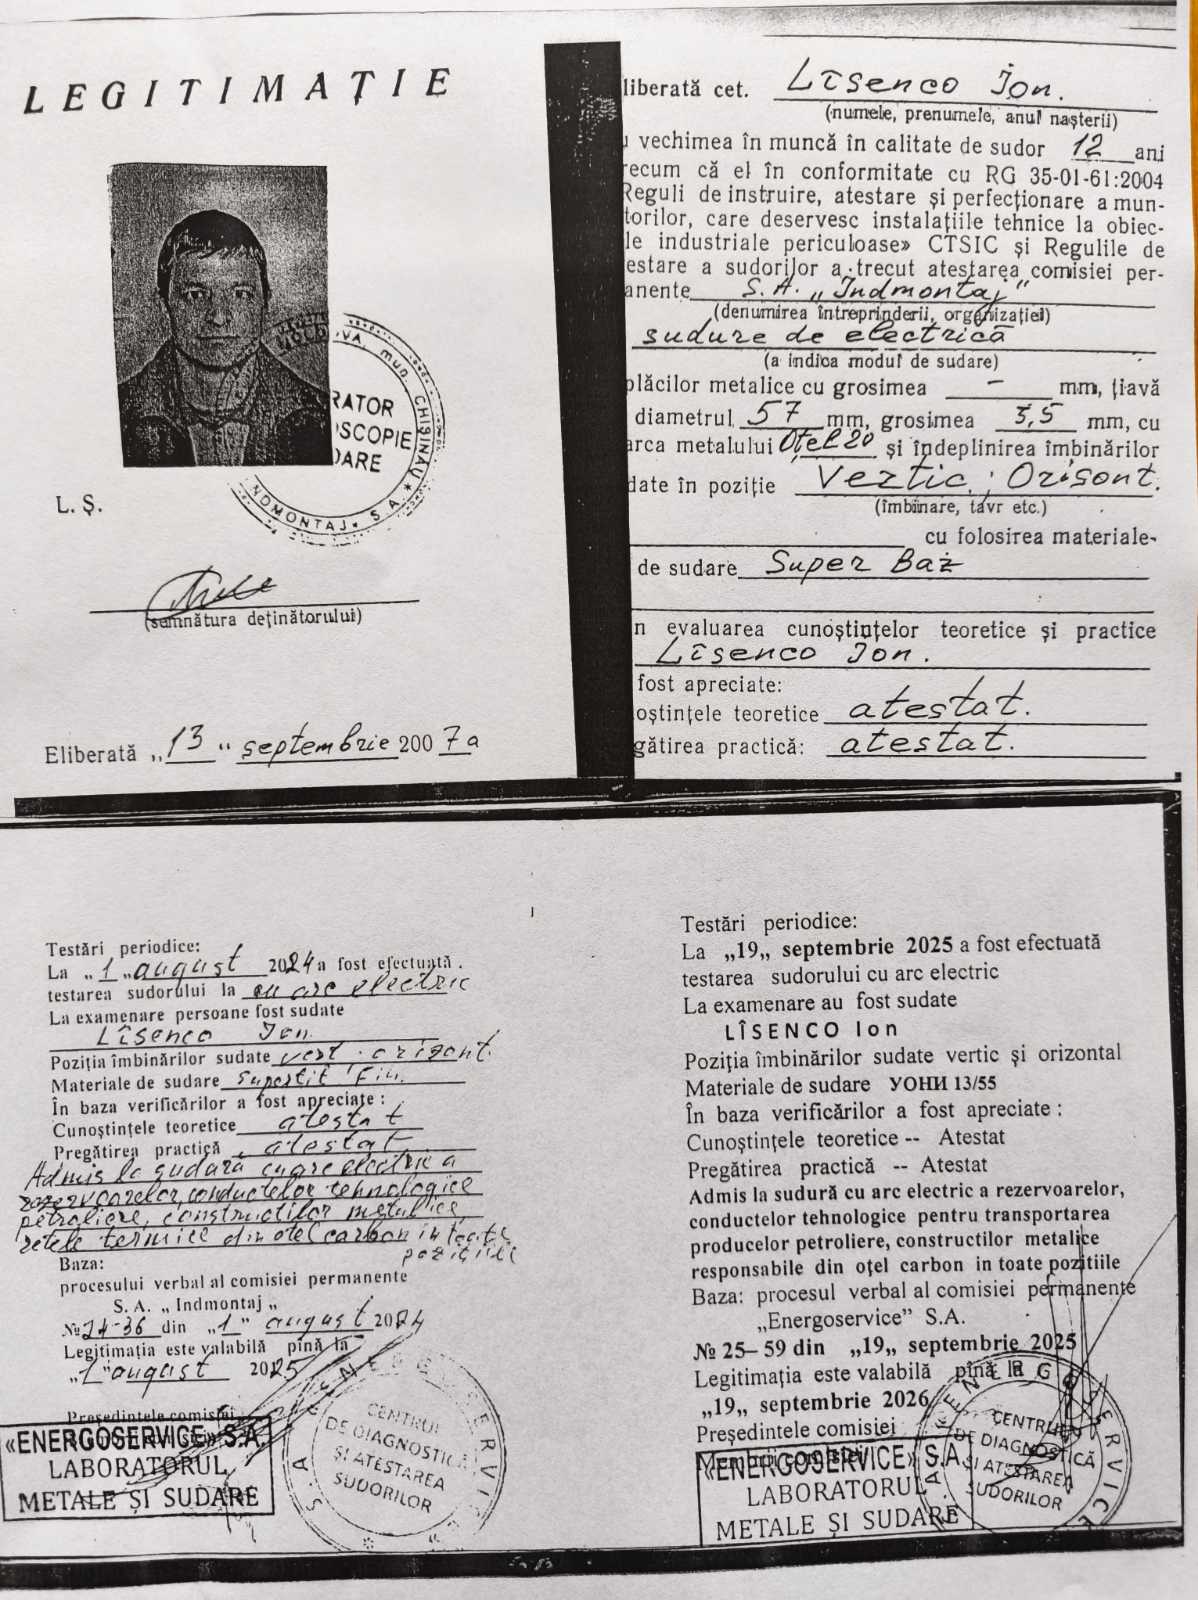 LEGITIMAȚIE
L. Ș.
(semnătura deținătorului)
Eliberată „13“ septembrie 2007a
RATOR
OSCOPIE
DARE
MOLDOVA, mun. CHIȘINĂU * S.A. * INDMONTAJ *
liberată cet. Lîsenco Ion.
(numele, prenumele, anul nașterii)
u vechimea în muncă în calitate de sudor 12 ani
recum că el în conformitate cu RG 35-01-61:2004
Reguli de instruire, atestare și perfecționare a mun-
torilor, care deservesc instalațiile tehnice la obiec-
le industriale periculoase» CTSIC și Regulile de
estare a sudorilor a trecut atestarea comisiei per-
anente S.A. „Indmontaj"
(denumirea întreprinderii, organizației)
sudure de electrică
(a indica modul de sudare)
plăcilor metalice cu grosimea - mm, țiavă
diametrul 57 mm, grosimea 3,5 mm, cu
arca metalului Oțel 20 și îndeplinirea îmbinărilor
date în poziție Vertic. ; Orisont.
(îmbinare, tavr etc.)
cu folosirea materiale-
de sudare Super Baz
n evaluarea cunoștințelor teoretice și practice
Lîsenco Ion.
fost apreciate:
oștințele teoretice atestat.
gătirea practică: atestat.
Testări periodice:
La „1„ august 2024 a fost efectuată.
testarea sudorului la cu arc electric
La examenare persoane fost sudate
Lîsenco Ion.
Poziția îmbinărilor sudate vert. orizont.
Materiale de sudare Supertit Fin.
În baza verificărilor a fost apreciate :
Cunoștințele teoretice atestat
Pregătirea practică atestat
Admis la sudură cu arc electric a
rezervoarelor, conductelor tehnologice
petroliere, constructiilor metalice,
retele termice din otel carbon in toate
pozitiile
Baza:
procesului verbal al comisiei permanente
S. A. „ Indmontaj „
№ 24-36 din „1" august 2024
Legitimația este valabilă pînă la
„1"august 2025
Președintele comisiei
«ENERGOSERVICE» S.A.
LABORATORUL
METALE ȘI SUDARE
S.A. ENERGOSERVICE *
CENTRUL
DE DIAGNOSTICĂ
ȘI ATESTAREA
SUDORILOR
Testări periodice:
La „19„ septembrie 2025 a fost efectuată
testarea sudorului cu arc electric
La examenare au fost sudate
LÎSENCO Ion
Poziția îmbinărilor sudate vertic și orizontal
Materiale de sudare УОНИ 13/55
În baza verificărilor a fost apreciate :
Cunoștințele teoretice -- Atestat
Pregătirea practică -- Atestat
Admis la sudură cu arc electric a rezervoarelor,
conductelor tehnologice pentru transportarea
producelor petroliere, constructilor metalice
responsabile din oțel carbon in toate pozitiile
Baza: procesul verbal al comisiei permanente
„Energoservice” S.A.
№ 25– 59 din „19„ septembrie 2025
Legitimația este valabilă pînă la
„19„ septembrie 2026
Președintele comisiei
Membrii comisiei
«ENERGOSERVICE» S.A.
LABORATORUL
METALE ȘI SUDARE
S.A. ENERGOSERVICE
CENTRUL
DE DIAGNOSTICĂ
ȘI ATESTAREA
SUDORILOR